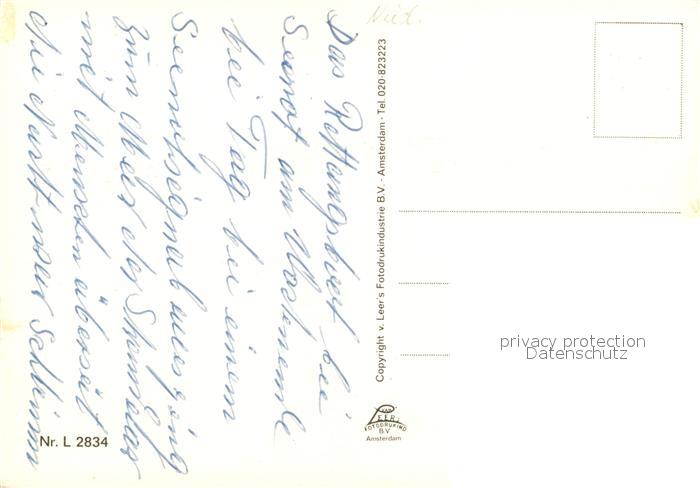 Das Rettungsboot bei
Seenot am Wochenende
bei Tag bei einem
Seenotsignal ging
zum Meer der Strand
mit Menschen übersät
Die Nacht war schlimm
Nied.
Copyright v. Leer's Fotodrukindustrie B.V. - Amsterdam - Tel. 020-823223
VAN
LEER
FOTODRUKIND
B.V
Amsterdam
Nr. L 2834
privacy protection
Datenschutz